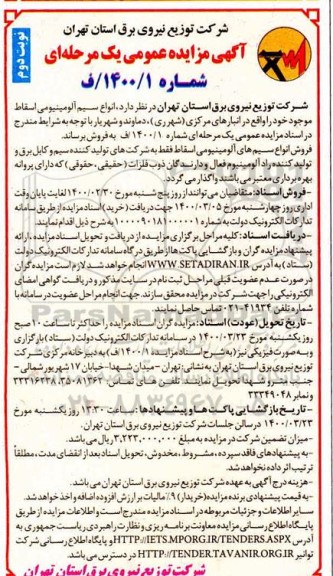 شرکت توزیع نیروی برق استان تهران
نوبت دوم
آگهی مزایده عمومی یک مرحله‌ای
شماره ۱۴۰۰/۱/ف
شرکت توزیع نیروی برق استان تهران در نظر دارد، انواع سیم آلومینیومی اسقاط
موجود خود را واقع در انبارهای مرکزی (شهرری)، دماوند و شهریار با توجه به شرایط مندرج
در اسناد مزایده عمومی یک مرحله‌ای شماره ۱۴۰۰/۱ ف به فروش برساند.
فروش انواع سیم‌های آلومینیومی اسقاط فقط به شرکت‌های تولید کننده سیم و کابل برق و
تولید کننده راد آلومینیوم فعال و دارندگان ذوب فلزات (حقیقی، حقوقی) که دارای پروانه
بهره برداری معتبر می‌باشند واگذار می‌گردد
-فروش اسناد: متقاضیان می‌توانند از روز پنج شنبه مورخ ۱۴۰۰/۰۲/۳۰ لغایت پایان وقت
اداری روز چهارشنبه مورخ ۱۴۰۰/۰۳/۰۵ جهت دریافت (خرید) اسناد مزایده از طریق سامانه
تدارکات الکترونیک دولت به شماره به شرح ذیل اقدام نمایند.
-دریافت اسناد: کلیه مراحل برگزاری مزایده از دریافت و تحویل اسناد مزایده، ارائه
پیشنهاد مزایده گران و بازگشایی پاکت‌ها از طریق درگاه سامانه تدارکات الکترونیک دولت
(ستاد) به آدرس WWW.SETADIRAN.IR انجام خواهد شد. لازم است مزایده گران
در صورت عدم عضویت قبلی مراحل ثبت نام در سایت مذکور و دریافت گواهی امضای
الکترونیکی را جهت شرکت در مزایده محقق سازند. جهت انجام مراحل عضویت در سامانه با
شماره تلفن ۰۲۱-۴۱۹۳۴ تماس حاصل نمایند.
-تاریخ تحویل (عودت) اسناد: مزایده گران اسناد مزایده را حداکثر تا ساعت ۱۰ صبح
روز یکشنبه مورخ ۱۴۰۰/۰۳/۲۳ در سامانه تدارکات الکترونیک دولت (ستاد) بارگزاری
و به صورت فیزیکی نیز (به شرح اسناد مزایده ۱۴۰۰/۱ف) به دبیرخانه مرکزی شرکت
توزیع نیروی برق استان تهران به نشانی: تهران - میدان شهدا- خیابان ۱۷ شهریور شمالی -
جنب مترو شهدا تحویل نمایند. تلفن های تماس: ۳۵۰۸۱۳۶۲، ۳۳۳۱۶۲۳۸
ونمابر ۳۳۳۴۹۰۴۸
-تاریخ بازگشایی پاکت‌ها و پیشنهادها: ساعت ۱۳:۳۰ روز یکشنبه مورخ
۱۴۰۰/۰۳/۲۳ در سالن جلسات شرکت توزیع نیروی برق استان تهران.
-میزان تضمین شرکت در مزایده به مبلغ ۳,۲۲۳,۰۰۰,۰۰۰ ریال می‌باشد.
-به پیشنهادهای فاقد سپرده، مشروط، مخدوش، تحویل اسناد بعد از انقضای مدت، مطلقاً
ترتیب اثر داده نخواهد شد.
-هزینه درج آگهی به عهده شرکت توزیع نیروی برق استان تهران می‌باشد.
-به قیمت پیشنهادی برنده مزایده (خریدار) ۹٪ مالیات بر ارزش افزوده اضافه و اخذ خواهد شد.
سایر اطلاعات و جزئیات مربوطه در اسناد مزایده مندرج است و اطلاعات مزایده از طریق
پایگاه اطلاع رسانی مزایده معاونت برنامه ریزی و نظارت راهبردی ریاست جمهوری به
آدرس HTTP://IETS.MPORG.IR/TENDERS.ASPX و پایگاه اطلاع رسانی شرکت
توانیر HTTP://TENDER.TAVANIR.ORG.IR در دسترس می‌باشد.
شرکت توزیع نیروی برق استان تهران